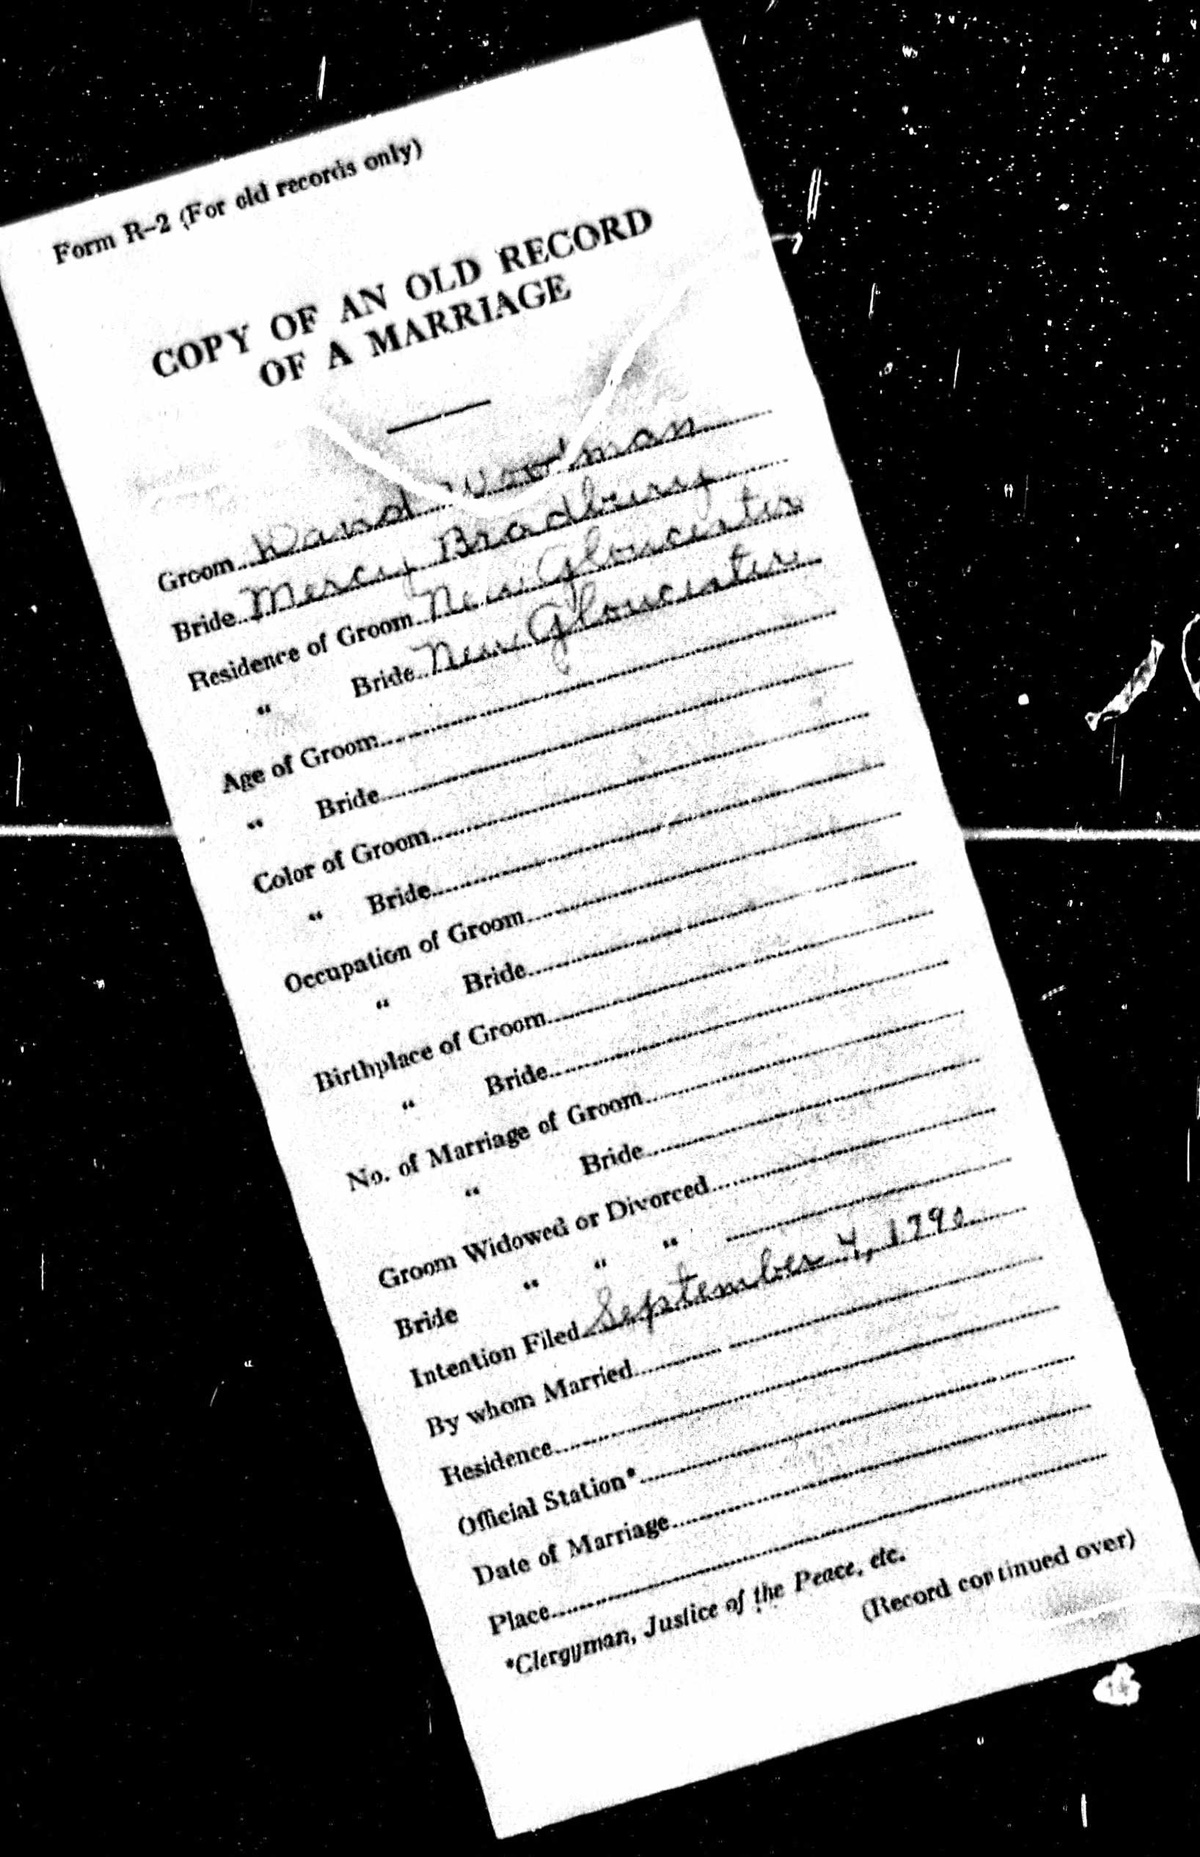 Form R-2 (For old records only)
COPY OF AN OLD RECORD
OF A MARRIAGE
Groom David Woodman
Bride Mercy Bradbury
Residence of Groom New Gloucester
" Bride New Gloucester
Age of Groom
" Bride
Color of Groom
" Bride
Occupation of Groom
" Bride
Birthplace of Groom
" Bride
No. of Marriage of Groom
" Bride
Groom Widowed or Divorced
Bride " " "
Intention Filed September 4, 1790
By whom Married
Residence
Official Station*
Date of Marriage
Place
*Clergyman, Justice of the Peace, etc.
(Record continued over)